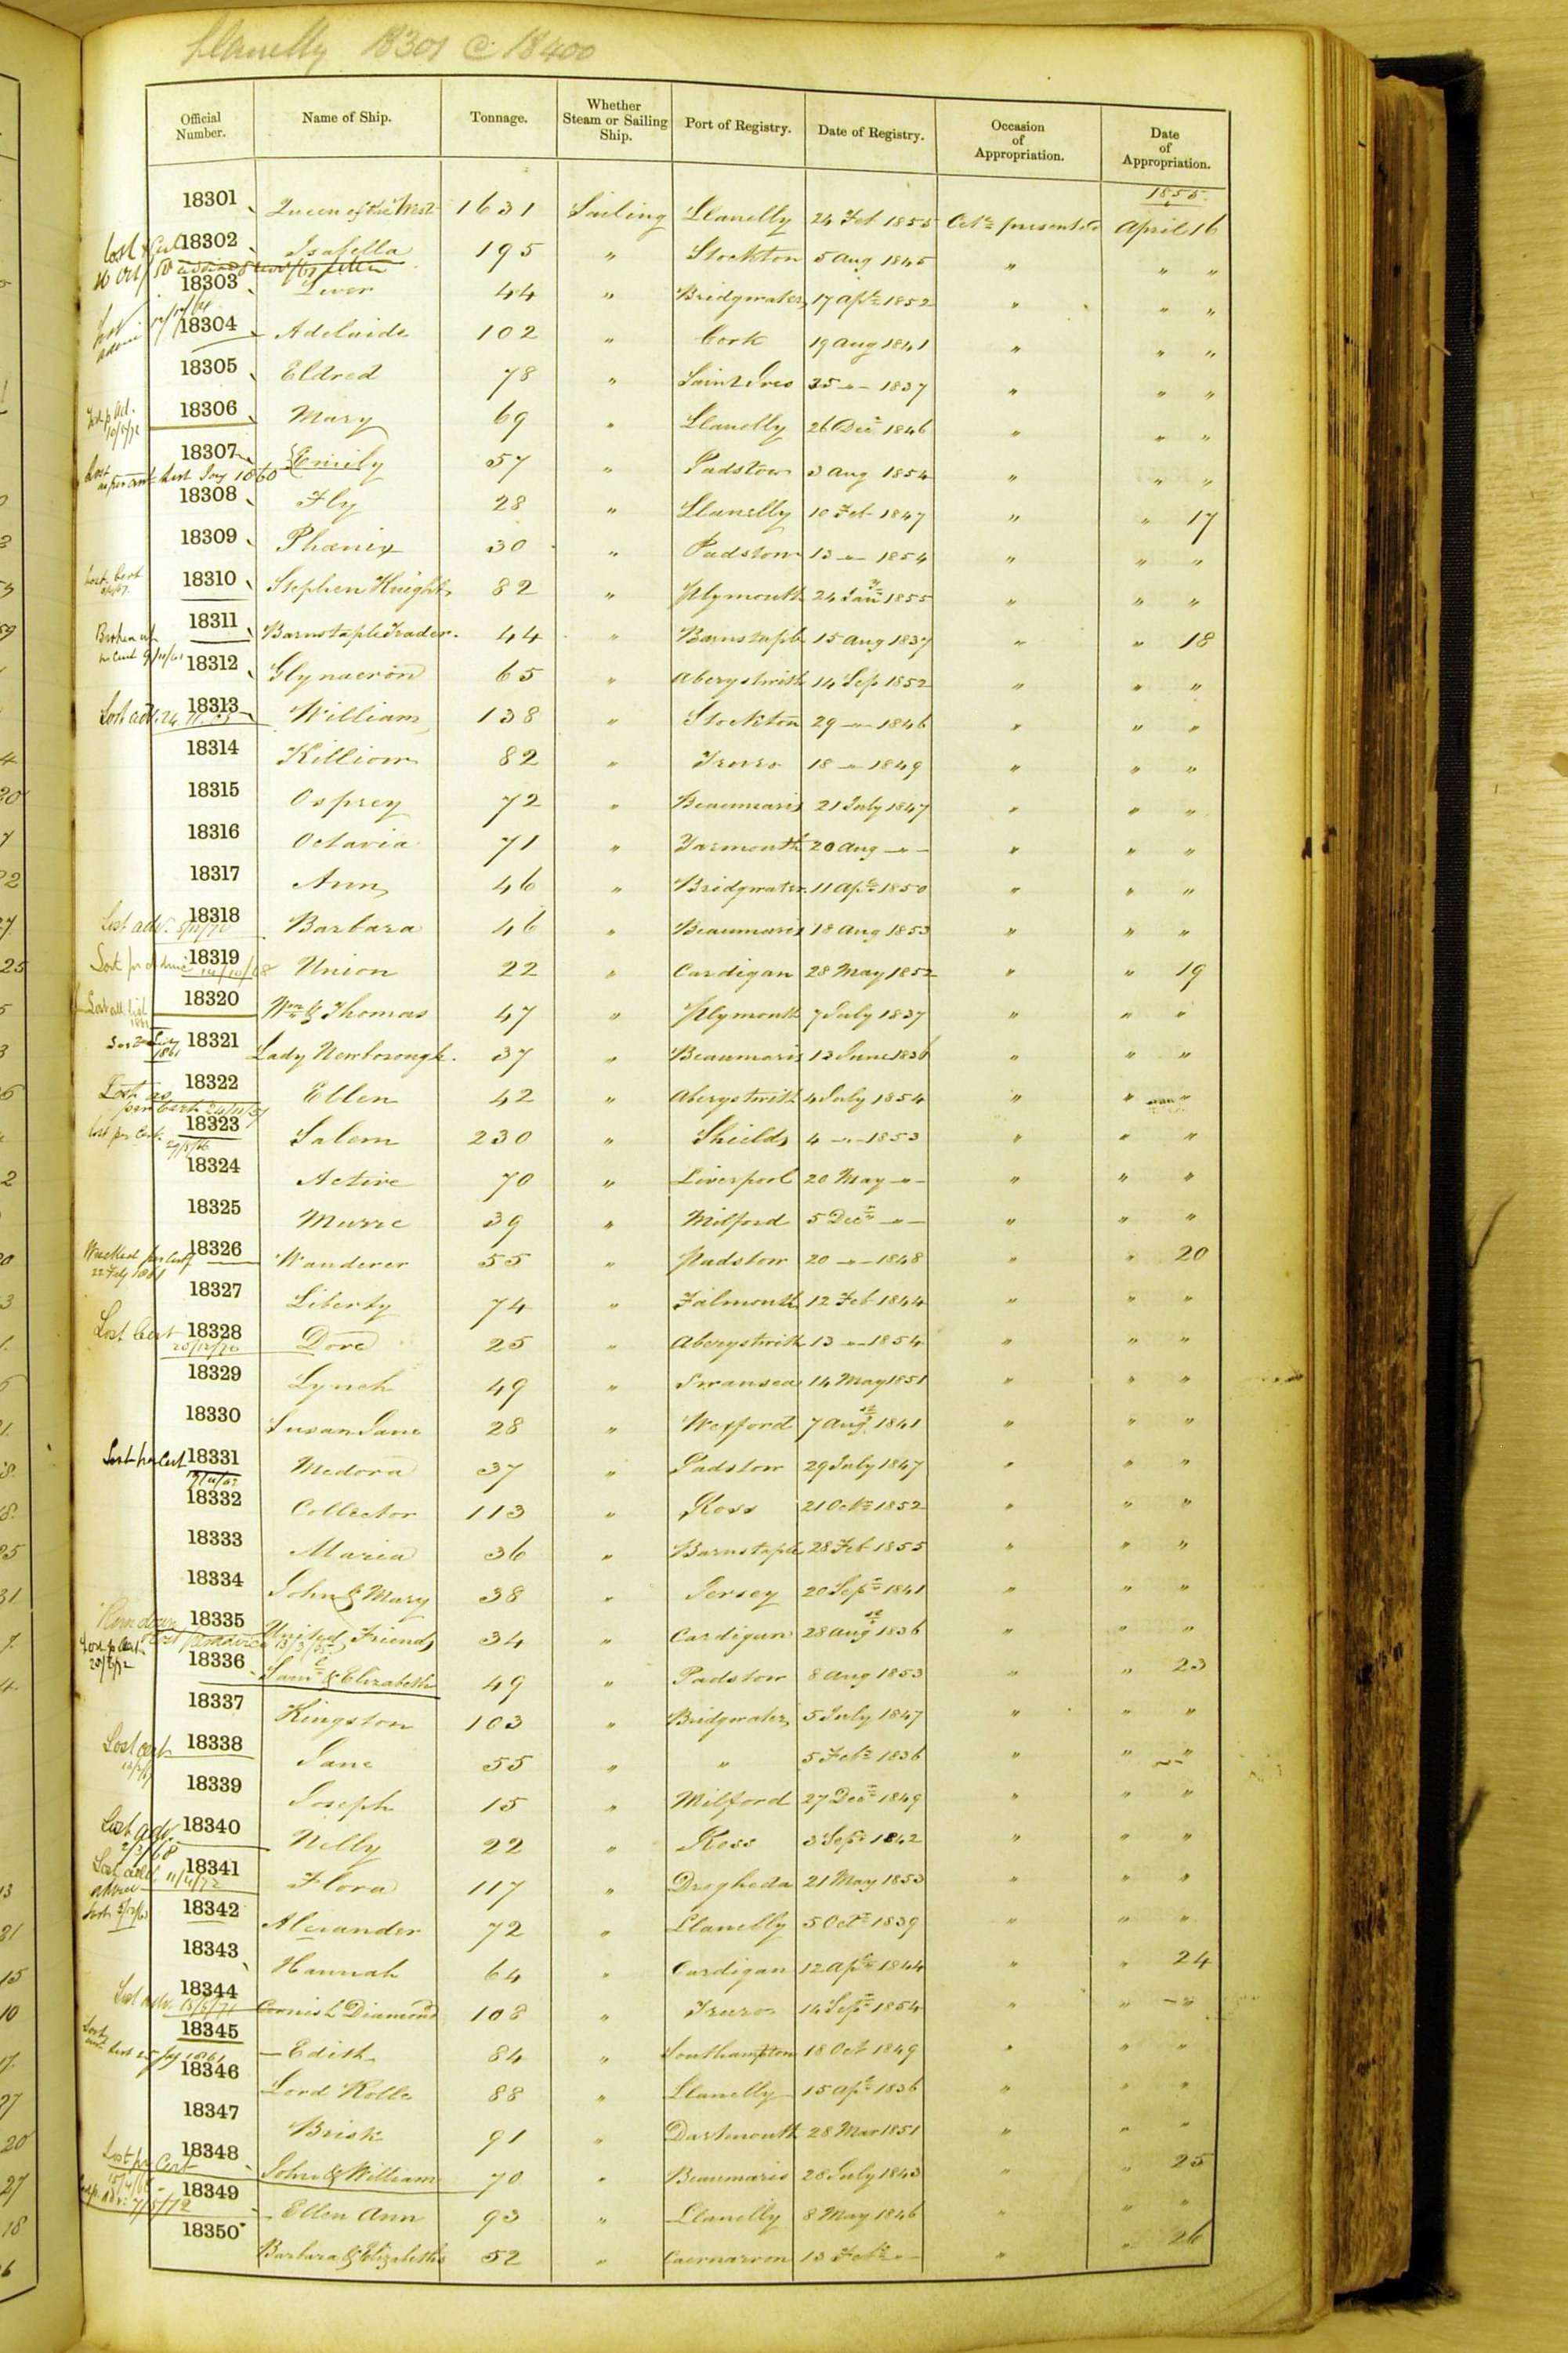 Llanelly 18301 @ 18400
Official Number. Name of Ship. Tonnage. Whether Steam or Sailing Ship. Port of Registry. Date of Registry. Occasion of Appropriation. Date of Appropriation.
1855.
18301 Queen of the West 1631 Sailing Llanelly 24 Feb 1855 presented April 16
18302 Isabella 195 " Stockton 5 Aug 1845 " " "
18303 Liver 44 " Bridgwater 17 Apl 1852 " " "
18304 Adelaide 102 " Cork 19 Aug 1841 " " "
18305 Eldred 78 " Saint Ives 25 -"- 1837 " " "
18306 Mary 69 " Llanelly 26 Decr 1846 " " "
18307 Emily 57 " Padstow 3 Aug 1854 " " "
18308 Fly 28 " Llanelly 10 Feb 1847 " " 17
18309 Phœnix 30 " Padstow 13 -"- 1854 " " "
Lost Cert 18310 Stephen Knight 82 " Plymouth 24 Jany 1855 " " "
18311 Barnstaple Trader 44 " Barnstaple 15 Aug 1837 " " 18
Broken up
18312 Glynaeron 65 " Aberystwith 14 Sep 1852 " " "
Lost adv. 24 18313 William 138 " Stockton 29 -"- 1846 " " "
18314 Killiow 82 " Truro 18 -"- 1849 " " "
18315 Osprey 72 " Beaumaris 21 July 1847 " " "
18316 Octavia 71 " Yarmouth 20 Aug -"- " " "
18317 Ann 46 " Bridgwater 11 Apl 1850 " " "
Lost adv. 18318 Barbara 46 " Beaumaris 18 Aug 1853 " " "
Lost pr advice 14/10/68 18319 Union 22 " Cardigan 28 May 1852 " " 19
18320 Wm & Thomas 47 " Plymouth 7 July 1837 " " "
1861 18321 Lady Newborough 37 " Beaumaris 13 June 1836 " " "
18322 Ellen 42 " Aberystwith 4 July 1854 " " "
Lost as per Cert
Lost per Cert. 18323 Salem 230 " Shields 4 -"- 1853 " " "
18324 Active 70 " Liverpool 20 May -"- " " "
18325 Murre 39 " Milford 5 Decr -"- " " "
Wrecked per Certf 18326 Wanderer 55 " Padstow 20 -"- 1848 " " 20
18327 Liberty 74 " Falmouth 12 Feb 1844 " " "
Lost Cert 18328 Dove 25 " Aberystwith 13 -"- 1854 " " "
18329 Lynch 49 " Swansea 14 May 1851 " " "
18330 Susan Jane 28 " Wexford 7 Aug 1841 " " "
Lost per Cert 18331 Medora 37 " Padstow 29 July 1847 " " "
18332 Collector 113 " Ross 21 Octr 1852 " " "
18333 Maria 36 " Barnstaple 28 Feb 1855 " " "
18334 John & Mary 38 " Jersey 20 Sepr 1841 " " "
Run down 18335 United Friends 34 " Cardigan 28 Aug 1836 " " "
18336 Saml & Elizabeth 49 " Padstow 8 Aug 1853 " " 23
18337 Kingston 103 " Bridgwater 5 July 1847 " " "
Lost cert 18338 Jane 55 " " 5 Feby 1836 " " "
18339 Joseph 15 " Milford 27 Decr 1849 " " "
Lost adv. 2/3/68 18340 Nelly 22 " Ross 3 Sepr 1842 " " "
Lost advice 11/4/72 18341 Flora 117 " Drogheda 21 May 1853 " " "
Lost 18342 Alexander 72 " Llanelly 5 Octr 1839 " " "
18343 Hannah 64 " Cardigan 12 Apl 1844 " " 24
Lost adv. 18344 Cornish Diamond 108 " Truro 14 Sepr 1854 " " "
Lost 18345 Edith 84 " Southampton 18 Oct 1849 " " "
18346 Lord Rolle 88 " Llanelly 15 Apl 1836 " " "
18347 Brisk 91 " Dartmouth 28 Mar 1851 " " "
Lost per Cert 18348 John & William 70 " Beaumaris 28 July 1843 " " 25
7/5/72 18349 Ellen Ann 93 " Llanelly 8 May 1846 " " "
18350 Barbara & Elizabeth 52 " Caernarvon 13 Feby -"- " " 26